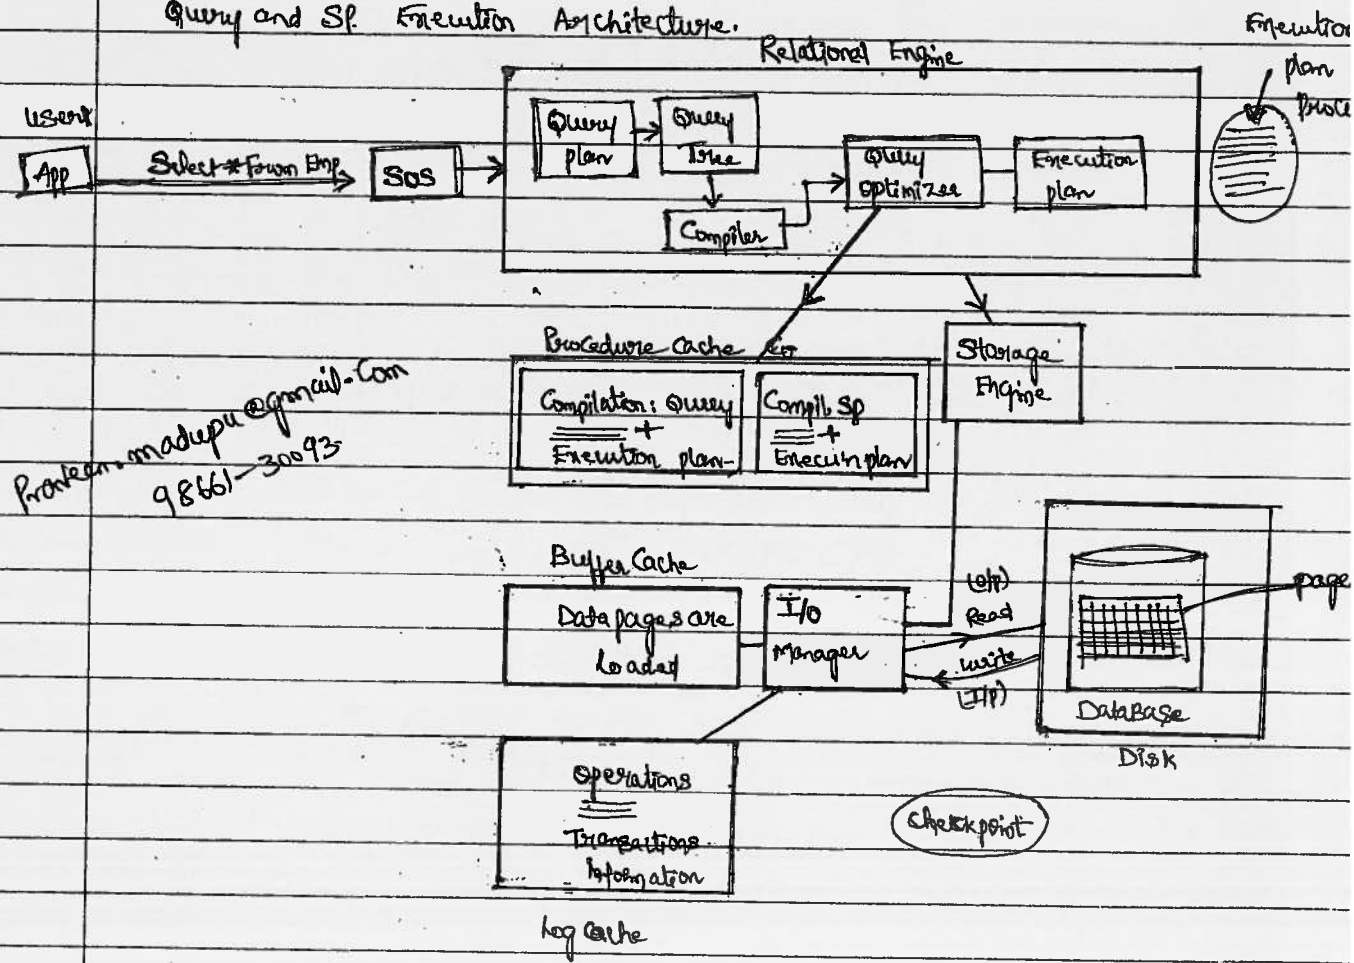 Query and SP. Execution Architecture.
Execution
plan
Proce
Relational Engine
Users
App
Select * From Emp
SOS
Query
plan
Query
Tree
Compiler
Query
optimizer
Execution
plan
Procedure Cache
Compilation: Query
+
Execution plan-
Compil. SP
+
Execuin plan
Storage
Engine
Praveen.madupu@gmail.com
98661-30093
Buffer Cache
Data pages are
Loaded
I/O
Manager
(O/P)
Read
write
(I/P)
page
DataBase
Disk
Operations
Transactions
Information
Log Cache
Checkpoint